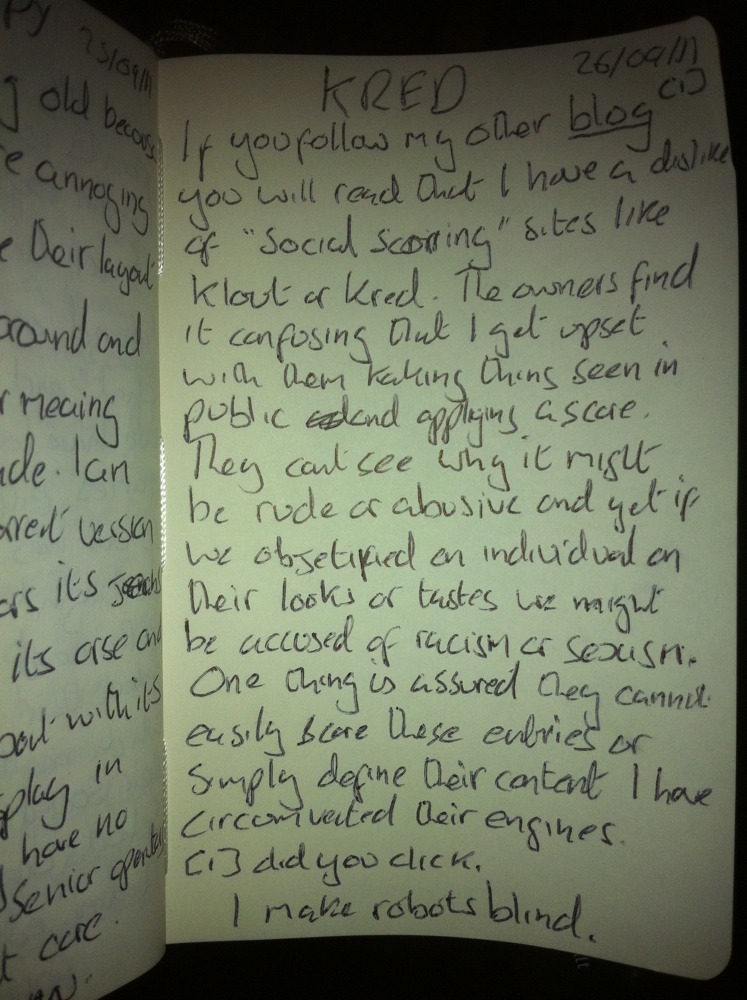 py 25/09/11
g old because
re annoying
e their layout
around and
r meaning
de. Ian
orrect version
ars its
its arse and
out with its
splay in
have no
Senior
t care.
26/09/11
KRED
If you follow my other blog [1]
you will read that I have a dislike
of "social scoring" sites like
Klout or Kred. The owners find
it confusing that I get upset
with them taking things seen in
public and applying a score.
They cant see why it might
be rude or abusive and yet if
we objetified an individual on
their looks or tastes we might
be accused of racism or sexism.
One thing is assured they cannot
easily score these entries or
simply define their content I have
circumvented their engines.
[1] did you click.
I make robots blind.